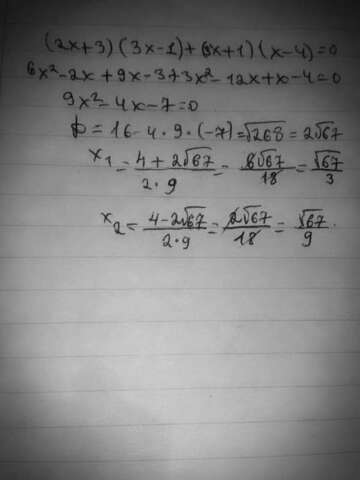 (2x+3)(3x-1)+(3x+1)(x-4)=0
6x²-2x+9x-3+3x²-12x+x-4=0
9x²-4x-7=0
D=16-4·9·(-7)=√268=2√67
x₁=4+2√67/2·9=6√67/18=√67/3
x₂=4-2√67/2·9=2√67/18=√67/9